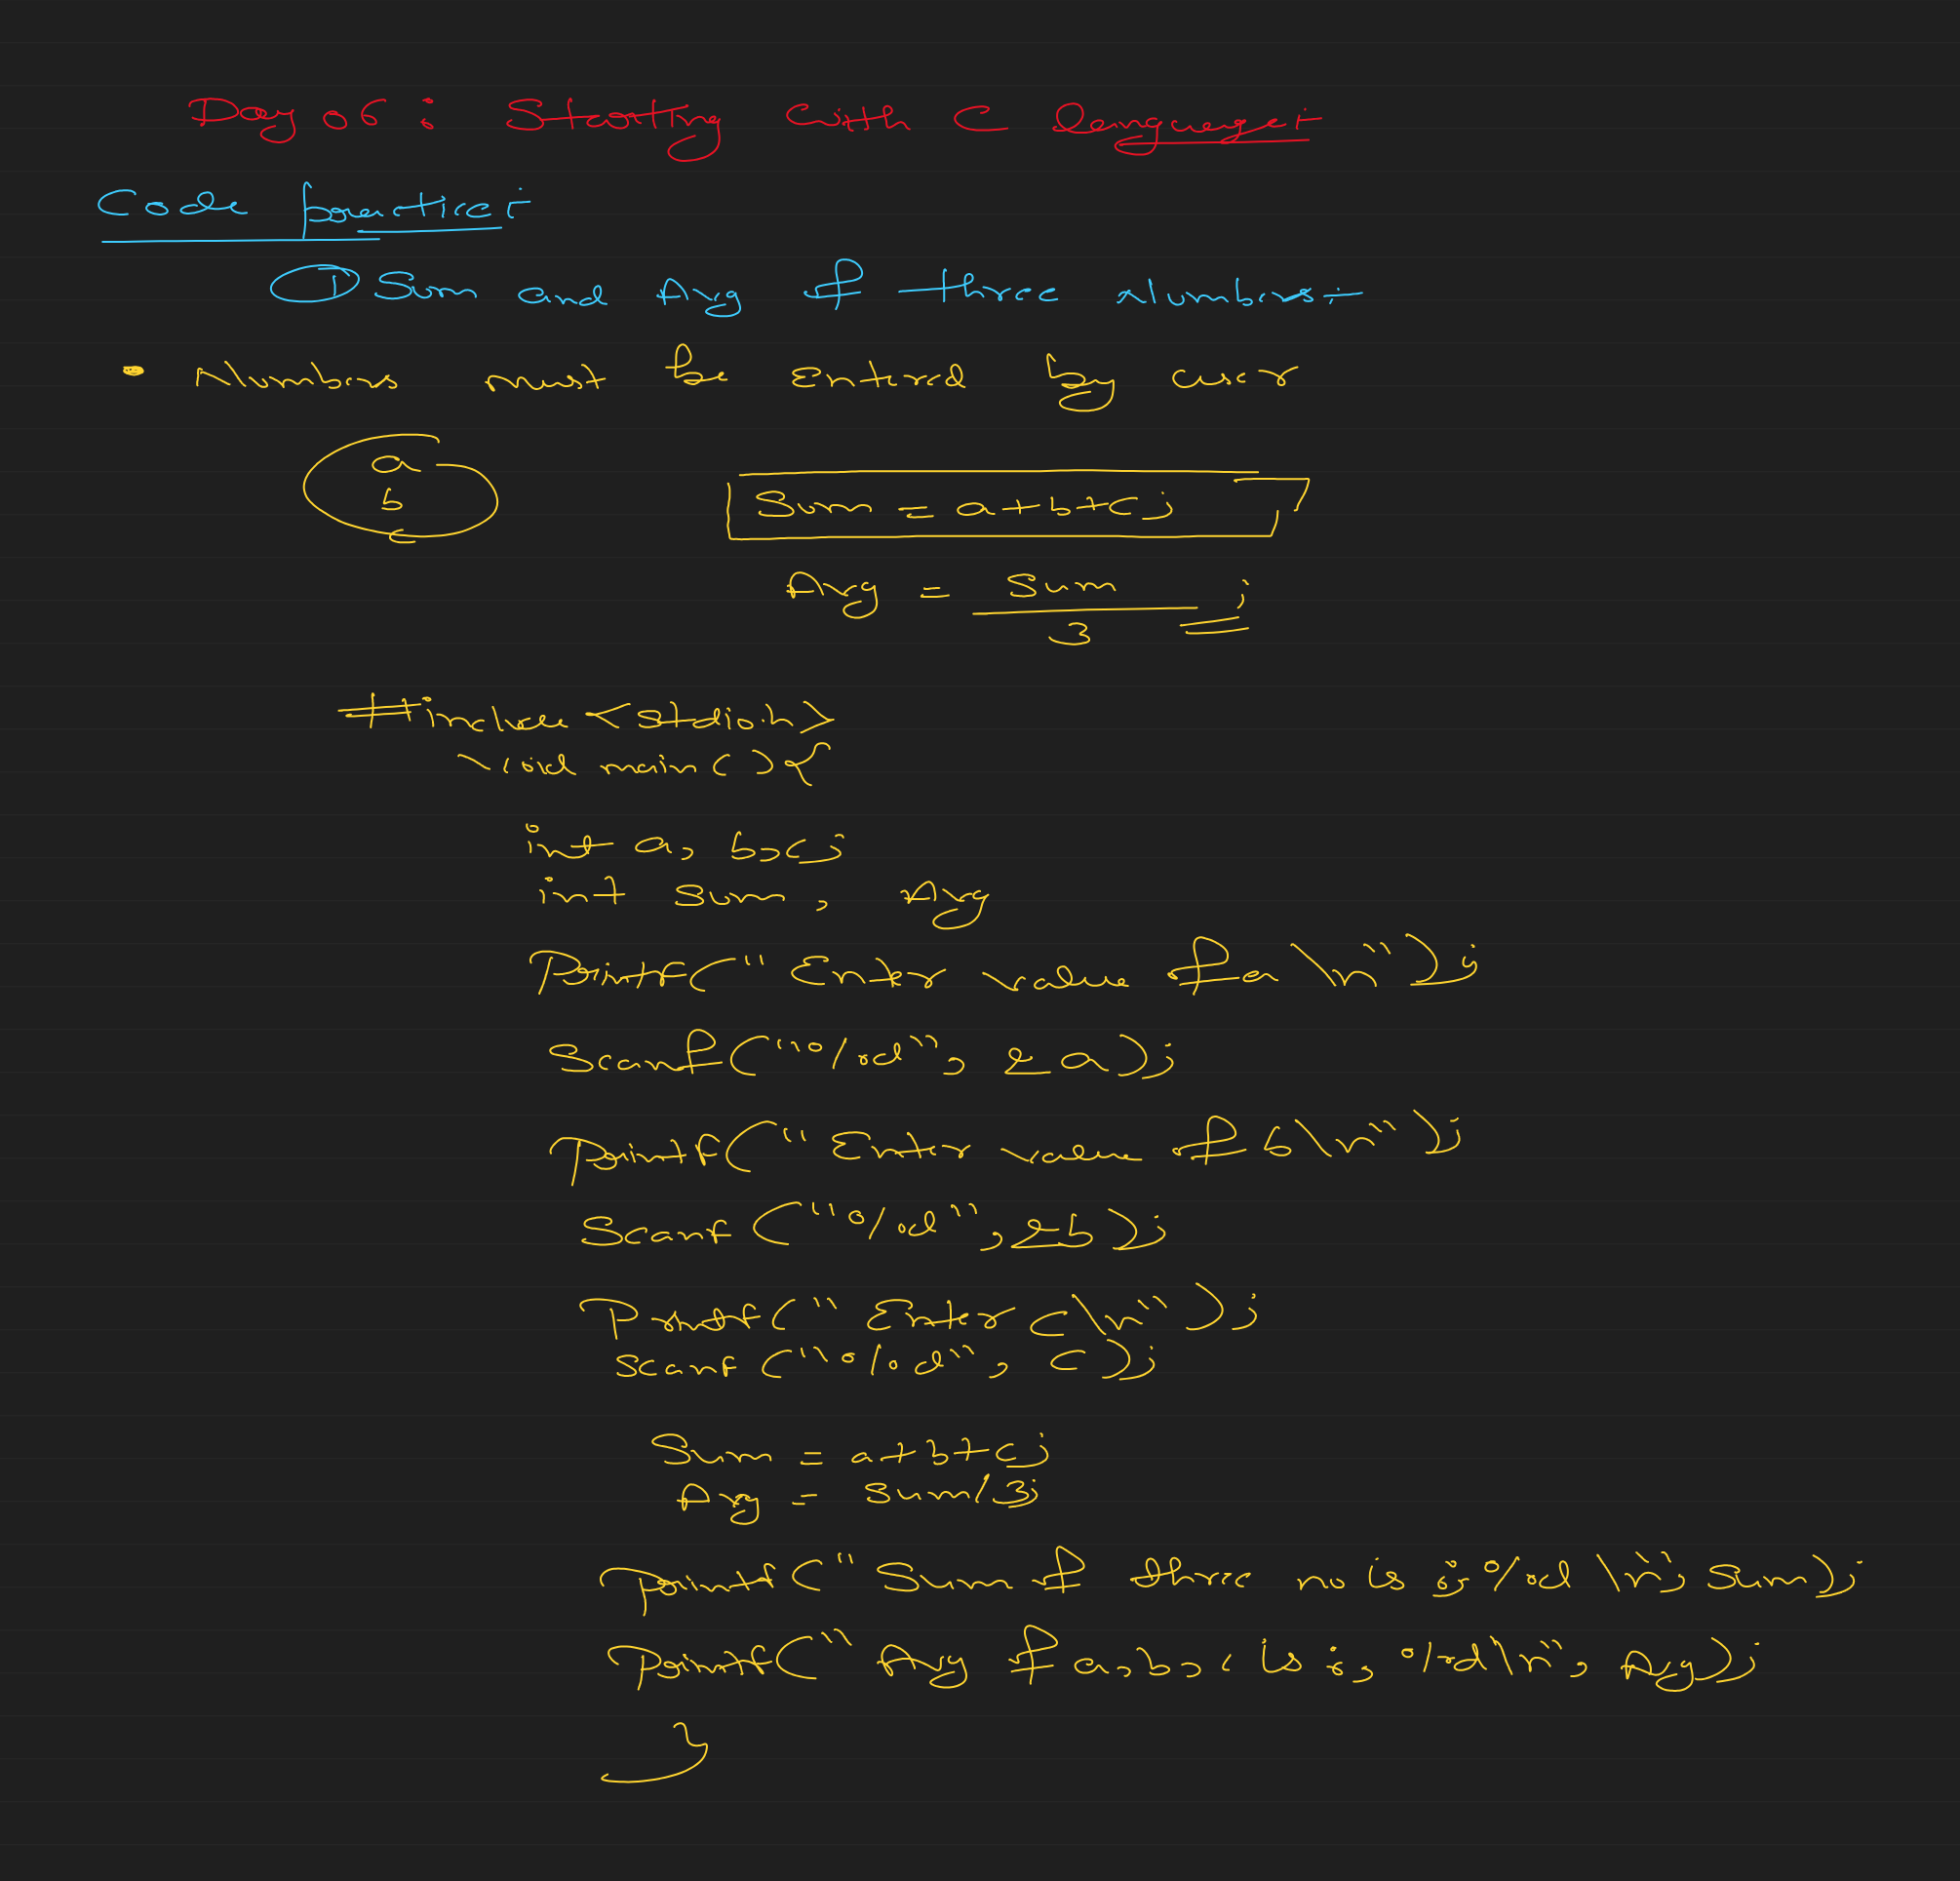 Day 06 : Starting with C language:-
Code practice:-
① Sum and Avg of three Numbers:-
• Numbers must be Entered by user
a
b
c
Sum = a+b+c;
Avg = Sum / 3 ;
#include <stdio.h>
void main () {
int a, b, c;
int Sum , Avg
Printf(" Enter value of a \n");
Scanf("%d", &a);
printf(" Enter value of b \n");
Scanf("%d", &b);
Printf(" Enter c \n");
Scanf("%d", c);
Sum = a+b+c;
Avg = Sum/3;
printf(" Sum of three no is : %d \n", Sum);
printf(" Avg of a,b,c is : %d\n", Avg);
}